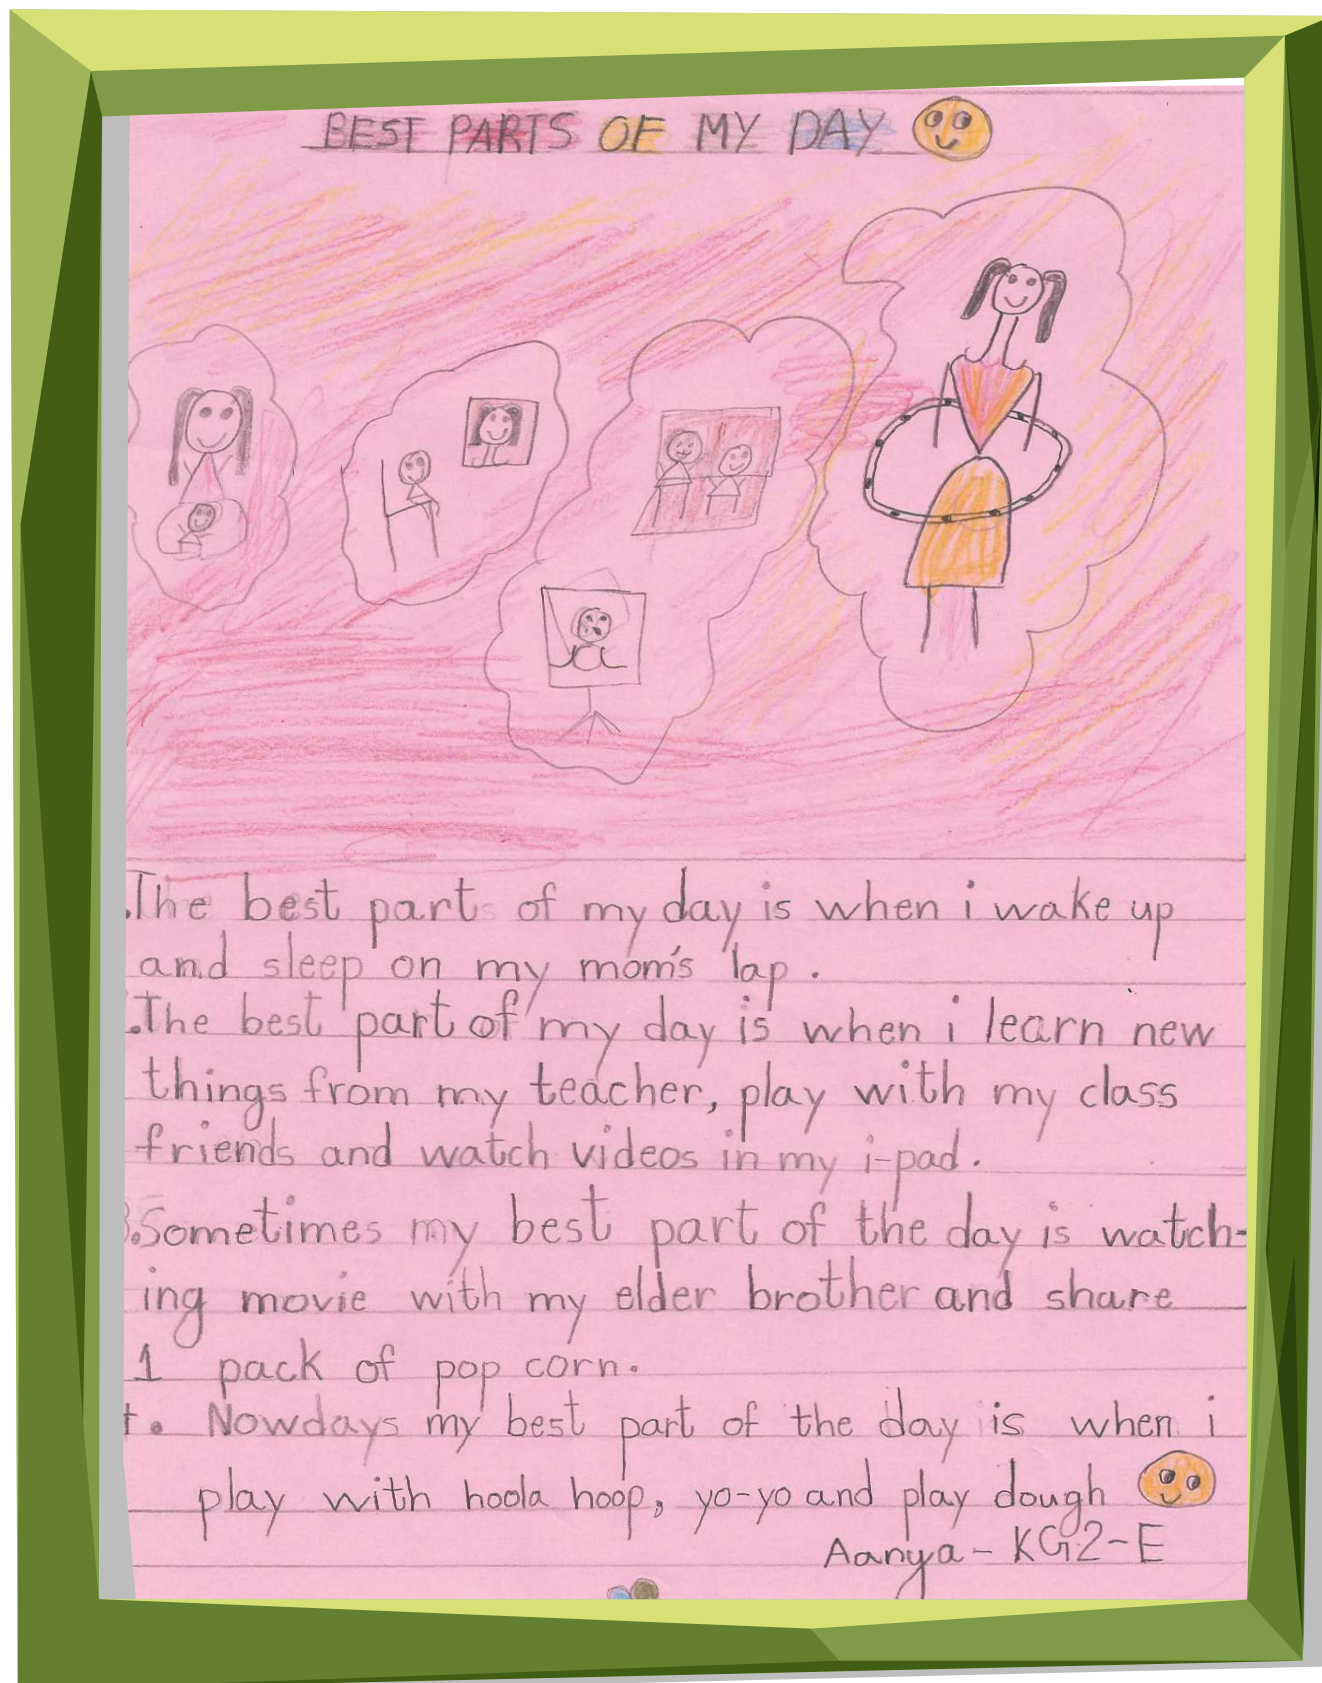 BEST PARTS OF MY DAY
.The best parts of my day is when i wake up
and sleep on my mom's lap .
.The best part of my day is when i learn new
things from my teacher, play with my class
friends and watch videos in my i-pad.
3.Sometimes my best part of the day is watch-
ing movie with my elder brother and share
1 pack of pop corn.
. Nowdays my best part of the day is when i
play with hoola hoop, yo-yo and play dough
Aanya - KG2-E